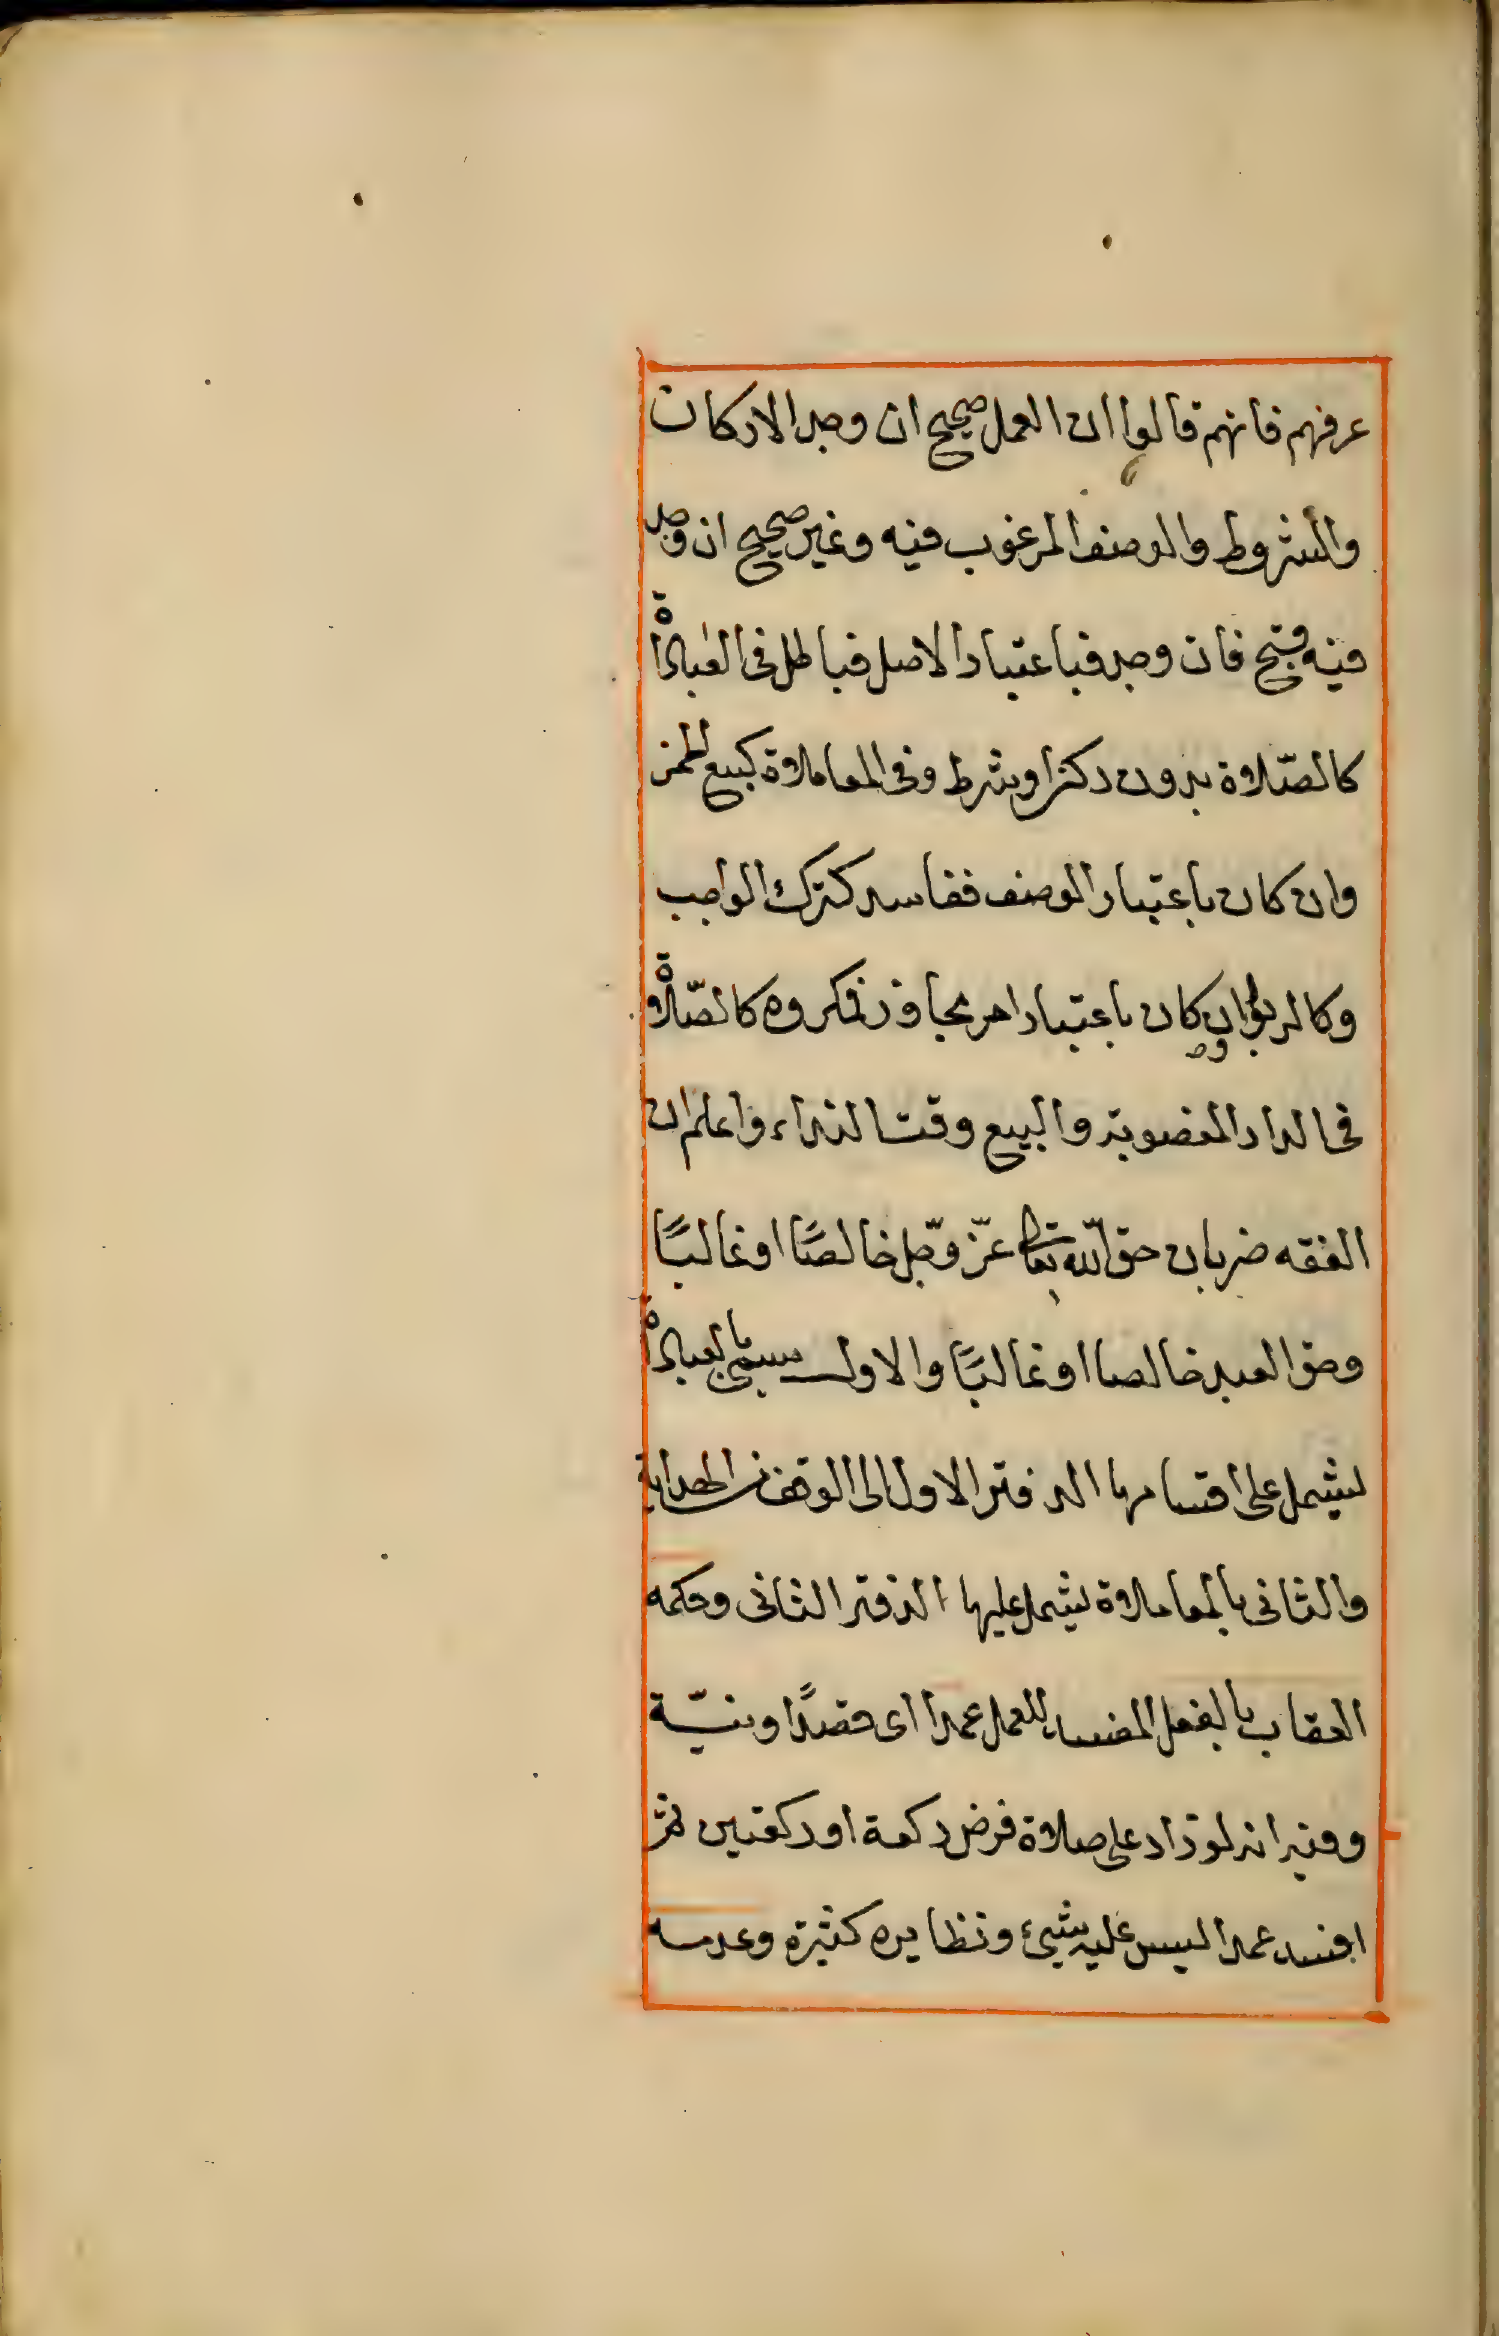 عرفهم فانهم قالوا ان العمل صحيح ان وجد الاركان
والشروط والوصف المرغوب فيه وغير صحيح ان وجد
فيه قبح فان وجد فباعتبار الاصل فباطل فى العباداة
كالصّلاوة بدون ركن او شرط وفى المعاملاوة كبيع الخمر
وان كان باعتبار الوصف ففاسد كترك الواجب
وكالربوا وان كان باعتبار امر مجاور فمكروه كالصّلاوة
فى الدار المغصوبة والبيع وقت النداء واعلم ان
الفقه ضربان حق اللّه تعالى عزّ وجّل خالصًا او غالبًا
وحق العبد خالصا او غالبًا والاول يسمى بالعباداة
يشمل على اقسامها الدفتر الاول الى الوقف من الهداية
والثانى بالمعاملاوة يشمل عليها الدفتر الثانى وحكمه
العقاب بالفعل المفسد للعمل عمدا اى قصدًا ونيّة
وفيه انه لو زاد على صلاوة فرض ركعة او ركعتين ثم
افسد عمدا ليس عليه شيئ ونظايره كثيرة وعدمه